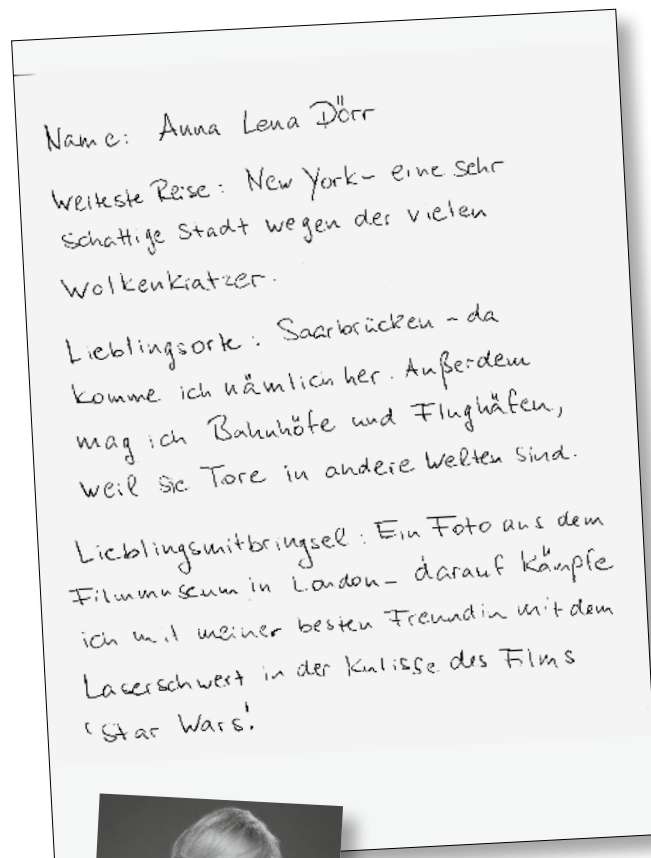 Name: Anna Lena Dörr
Weiteste Reise: New York – eine sehr
schattige Stadt wegen der vielen
Wolkenkratzer.
Lieblingsorte: Saarbrücken – da
komme ich nämlich her. Außerdem
mag ich Bahnhöfe und Flughäfen,
weil sie Tore in andere Welten sind.
Lieblingsmitbringsel: Ein Foto aus dem
Filmmuseum in London – darauf kämpfe
ich mit meiner besten Freundin mit dem
Laserschwert in der Kulisse des Films
'Star Wars'.